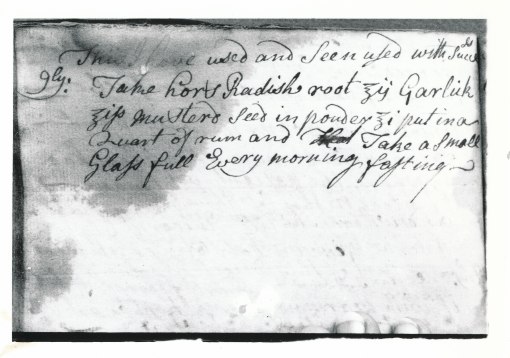 This I have used and Seen used with Succes
gly:
Take hors Radish root ʒij Garlick
ʒiſs musterd Seed in pouder ʒi put in a
Quart of rum and Take a Small
Glaſs full Every morning fasting